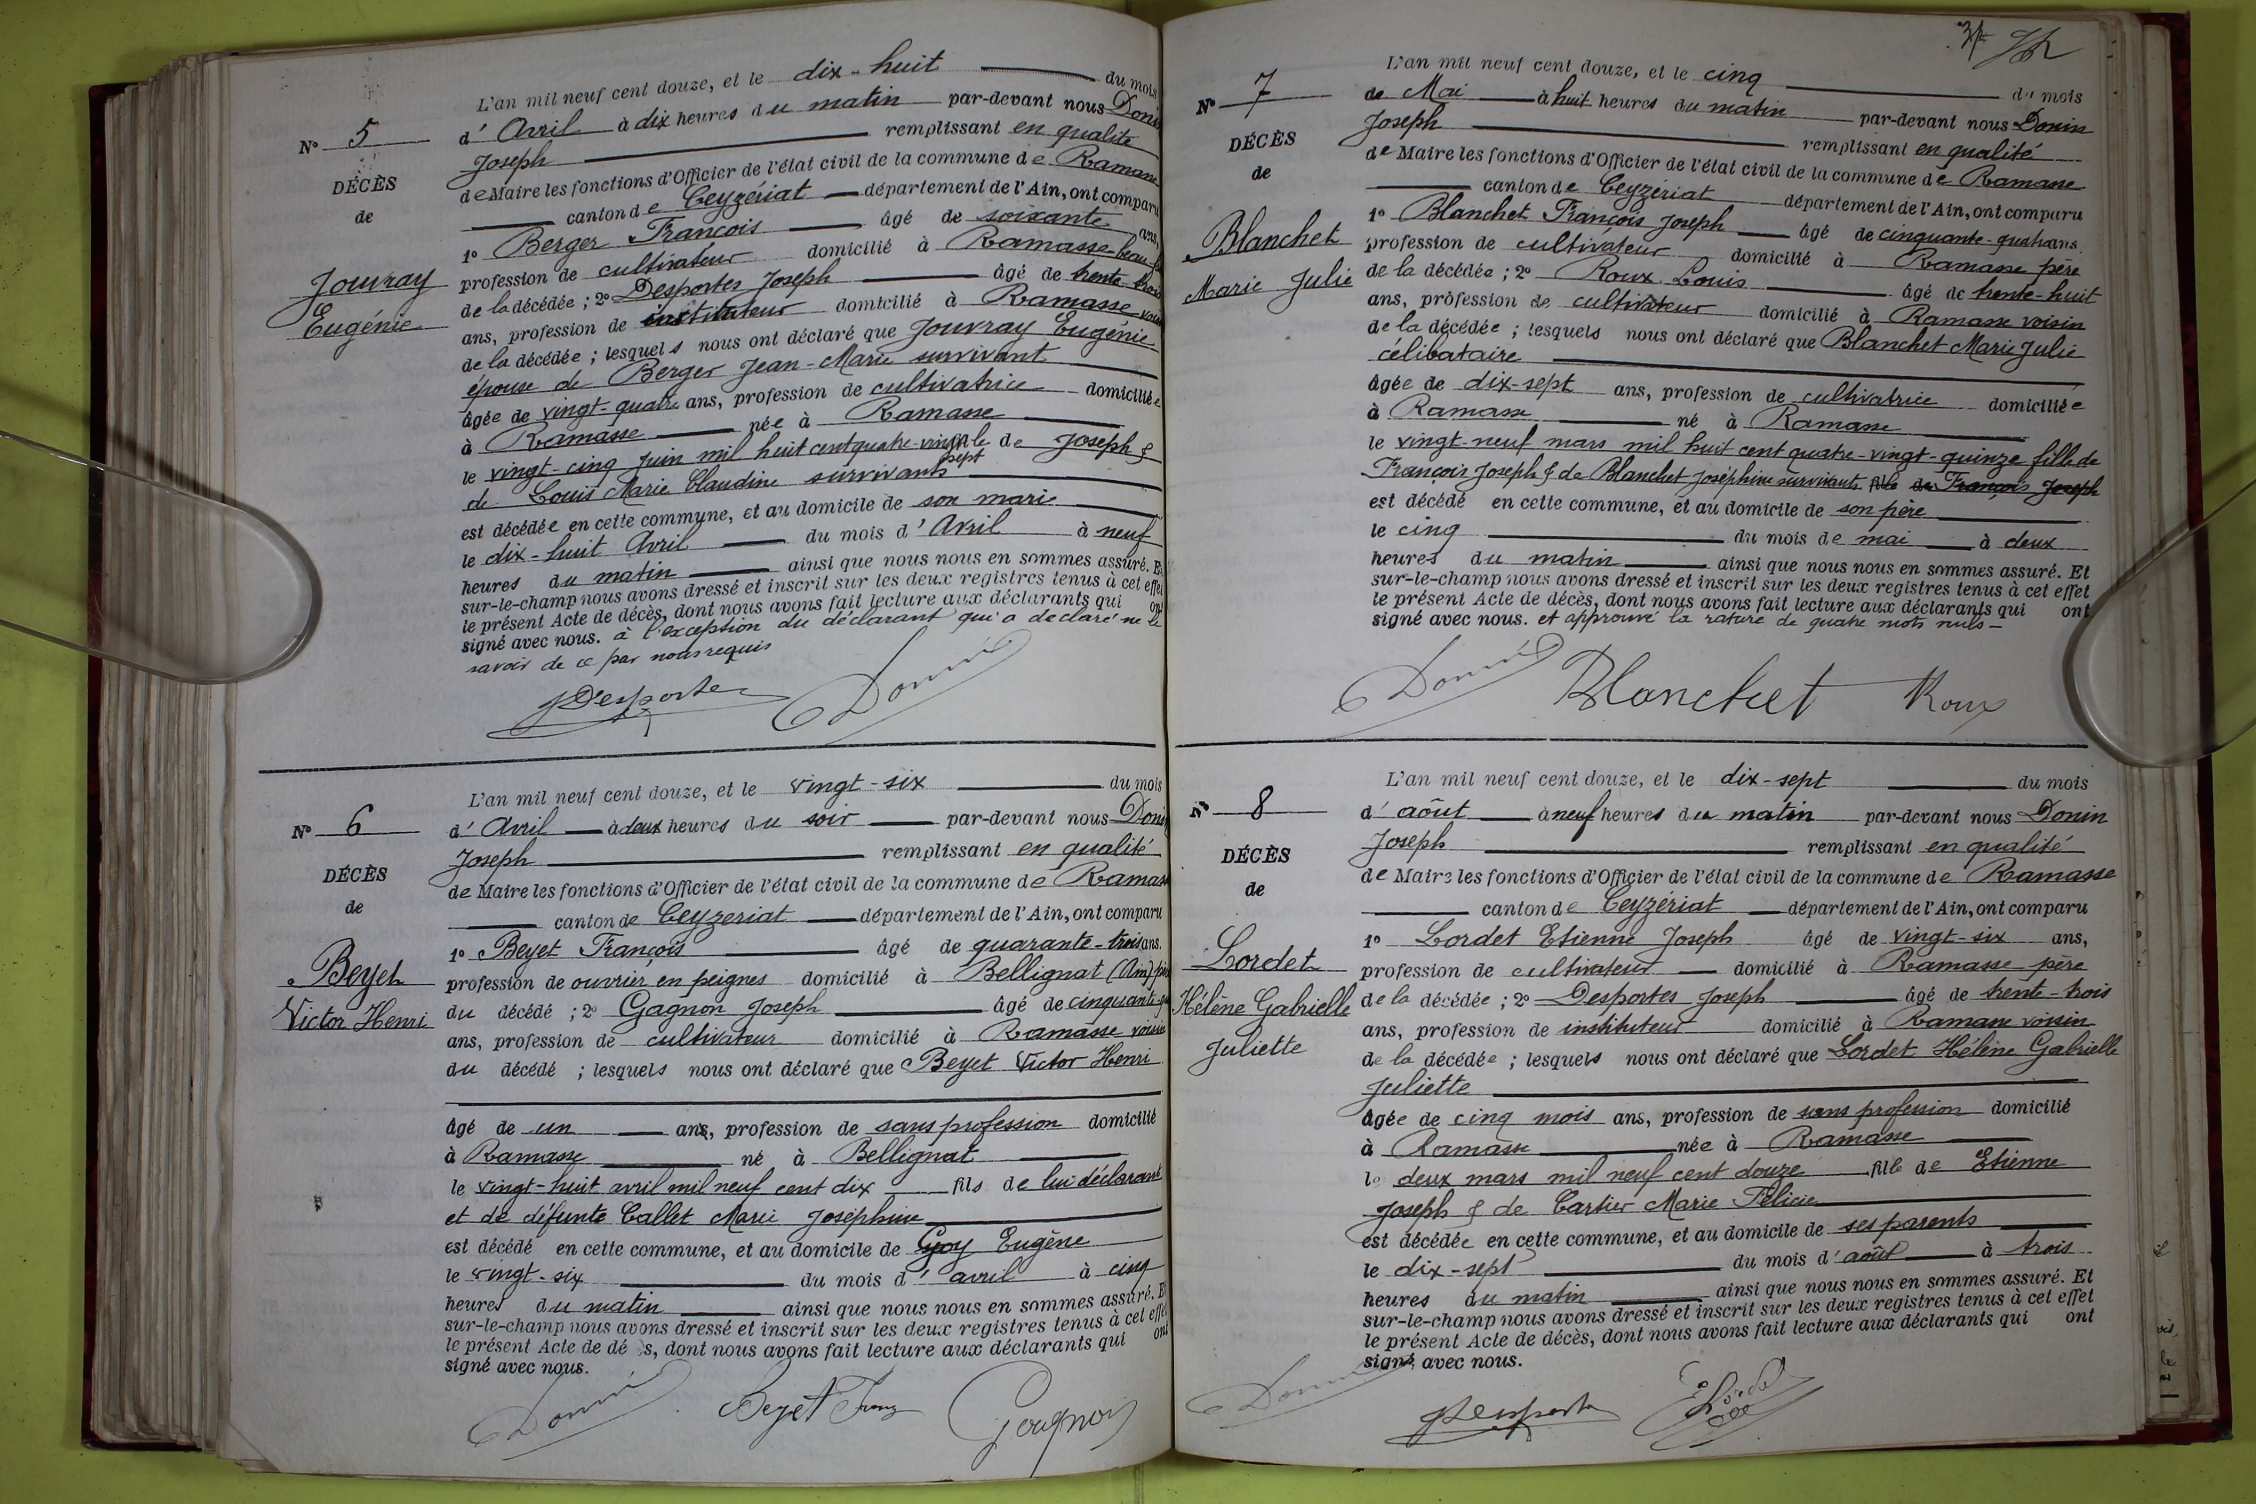 N° 5
DÉCÈS
de
Jouvray
Eugénie
L'an mil neuf cent douze, et le dix-huit du mois
d'Avril à dix heures du matin par-devant nous Donin
Joseph remplissant en qualité
de Maire les fonctions d'Officier de l'état civil de la commune de Ramasse
canton de Ceyzériat département de l'Ain, ont comparu
1° Berger François âgé de soixante ans,
profession de cultivateur domicilié à Ramasse beau-
de la décédée ; 2° Desportes Joseph âgé de trente-trois
ans, profession de instituteur domicilié à Ramasse voisin
de la décédée ; lesquels nous ont déclaré que Jouvray Eugénie
épouse de Berger Jean-Marie survivant
âgée de vingt-quatre ans, profession de cultivatrice domiciliée
à Ramasse née à Ramasse
le vingt-cinq Juin mil huit cent quatre-vingt fille de Joseph &
sept
de Louis Marie Claudine survivants
est décédée en cette commune, et au domicile de son mari
le dix-huit Avril du mois d'Avril à neuf
heures du matin ainsi que nous nous en sommes assuré. Et
sur-le-champ nous avons dressé et inscrit sur les deux registres tenus à cet effet
le présent Acte de décès, dont nous avons fait lecture aux déclarants qui ont
signé avec nous. à l'exception du déclarant qui a déclaré ne le
savoir de ce par nous requis
JDesportes Donin
N° 6
DÉCÈS
de
Beyet
Victor Henri
L'an mil neuf cent douze, et le vingt-six du mois
d'Avril à deux heures du soir par-devant nous Donin
Joseph remplissant en qualité
de Maire les fonctions d'Officier de l'état civil de la commune de Ramasse
canton de Ceyzeriat département de l'Ain, ont comparu
1° Beyet François âgé de quarante-trois ans.
profession de ouvrier en peignes domicilié à Bellignat (Ain) père
du décédé ; 2° Gagnon Joseph âgé de cinquante-
ans, profession de cultivateur domicilié à Ramasse voisin
du décédé ; lesquels nous ont déclaré que Beyet Victor Henri
âgé de un ans, profession de sans profession domicilié
à Ramasse né à Bellignat
le vingt-huit avril mil neuf cent dix fils de lui déclarant
et de défunte Callet Marie Joséphine
est décédé en cette commune, et au domicile de Goy Eugène
le vingt-six du mois d'avril à cinq
heures du matin ainsi que nous nous en sommes assuré. Et
sur-le-champ nous avons dressé et inscrit sur les deux registres tenus à cet effet
le présent Acte de dé s, dont nous avons fait lecture aux déclarants qui ont
signé avec nous.
Donin Beyet Gougnon
N° 7
DÉCÈS
de
Blanchet
Marie Julie
L'an mil neuf cent douze, et le cinq du mois
de Mai à huit heures du matin par-devant nous Donin
Joseph remplissant en qualité
de Maire les fonctions d'Officier de l'état civil de la commune de Ramasse
canton de Ceyzériat département de l'Ain, ont comparu
1° Blanchet François Joseph âgé de cinquante-quatre ans
profession de cultivateur domicilié à Ramasse père
de la décédée ; 2° Roux Louis âgé de trente-huit
ans, profession de cultivateur domicilié à Ramasse voisin
de la décédée ; lesquels nous ont déclaré que Blanchet Marie Julie
célibataire
âgée de dix-sept ans, profession de cultivatrice domiciliée
à Ramasse né à Ramasse
le vingt-neuf mars mil huit cent quatre-vingt-quinze fille de
François Joseph & de Blanchet Joséphine survivants fille de François Joseph
est décédé en cette commune, et au domicile de son père
le cinq du mois de mai à deux
heures du matin ainsi que nous nous en sommes assuré. Et
sur-le-champ nous avons dressé et inscrit sur les deux registres tenus à cet effet
le présent Acte de décès, dont nous avons fait lecture aux déclarants qui ont
signé avec nous. et approuvé la rature de quatre mots nuls
Donin Blanchet Roux
N° 8
DÉCÈS
de
Lordet
Hélène Gabrielle
Juliette
L'an mil neuf cent douze, et le dix-sept du mois
d'août à neuf heures du matin par-devant nous Donin
Joseph remplissant en qualité
de Maire les fonctions d'Officier de l'état civil de la commune de Ramasse
canton de Ceyzériat département de l'Ain, ont comparu
1° Lordet Etienne Joseph âgé de vingt-six ans,
profession de cultivateur domicilié à Ramasse père
de la décédée ; 2° Desportes Joseph âgé de trente-trois
ans, profession de instituteur domicilié à Ramasse voisin
de la décédée ; lesquels nous ont déclaré que Lordet Hélène Gabrielle
Juliette
âgée de cinq mois ans, profession de sans profession domicilié
à Ramasse née à Ramasse
le deux mars mil neuf cent douze fille de Etienne
Joseph & de Cartier Marie Félicie
est décédée en cette commune, et au domicile de ses parents
le dix-sept du mois d'août à trois
heures du matin ainsi que nous nous en sommes assuré. Et
sur-le-champ nous avons dressé et inscrit sur les deux registres tenus à cet effet
le présent Acte de décès, dont nous avons fait lecture aux déclarants qui ont
signé avec nous.
Donin JDesportes ELordet